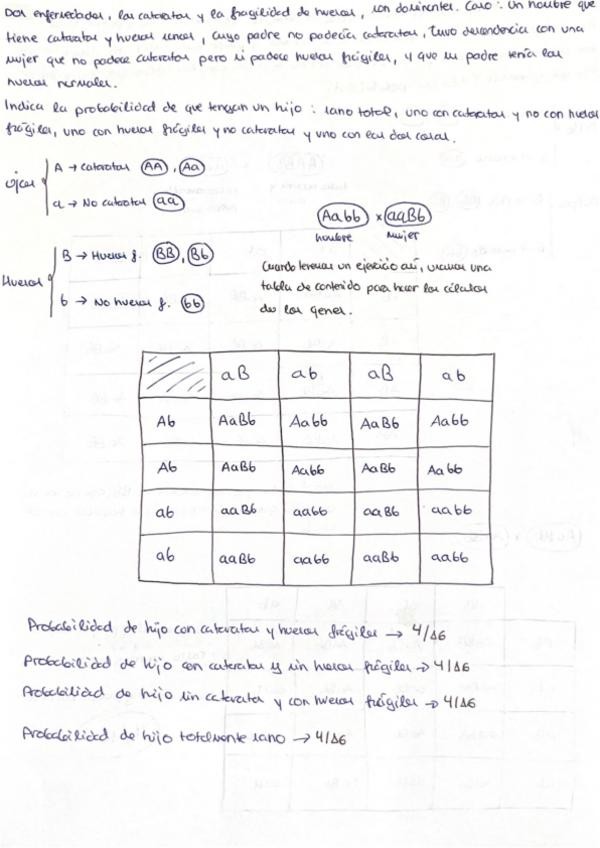 Dos enfermedades, las cataratas y la fragilidad de huesos, son dominantes. Caso: Un hombre que
tiene cataratas y huesos sanos, cuyo padre no padecía cataratas, tuvo descendencia con una
mujer que no padece cataratas pero si padece huesos frágiles, y que su padre tenía los
huesos normales.
Indica la probabilidad de que tengan un hijo: sano total, uno con cataratas y no con huesos
frágiles, uno con huesos frágiles y no cataratas y uno con las dos cosas.
ojos
A → cataratas AA, Aa
a → No cataratas aa
Huesos
B → Huesos f. BB, Bb
b → No huesos f. bb
Aabb x aaBb
hombre mujer
Cuando tenemos un ejercicio así, usamos una
tabla de contenido para hacer los cálculos
de los genes.
aB ab aB ab
Ab AaBb Aabb AaBb Aabb
Ab AaBb Aabb AaBb Aabb
ab aaBb aabb aaBb aabb
ab aaBb aabb aaBb aabb
Probabilidad de hijo con cataratas y huesos frágiles → 4/16
Probabilidad de hijo con cataratas y sin huesos frágiles → 4/16
Probabilidad de hijo sin cataratas y con huesos frágiles → 4/16
Probabilidad de hijo totalmente sano → 4/16